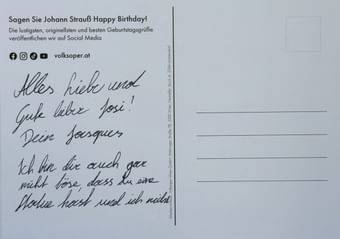 Sagen Sie Johann Strauß Happy Birthday!
Die lustigsten, originellsten und besten Geburtstagsgrüße
veröffentlichen wir auf Social Media
volksoper.at
Alles Liebe und
Gute lieber Josi!
Dein Jacques
Ich bin dir auch gar
nicht böse, dass du eine
Statue hast und ich nicht